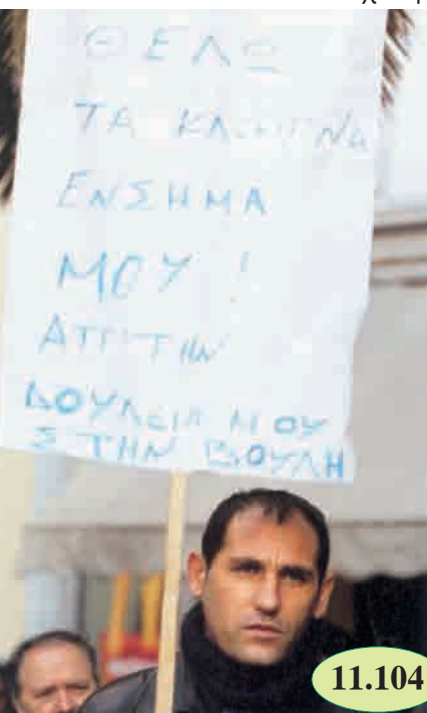 ΘΕΛΩ
ΤΑ
ΕΝΣΗΜΑ
ΜΟΥ !
ΑΠΟ ΤΗΝ
ΔΟΥΛΕΙΑ ΜΟΥ
ΣΤΗΝ ΒΟΥΛΗ
11.104